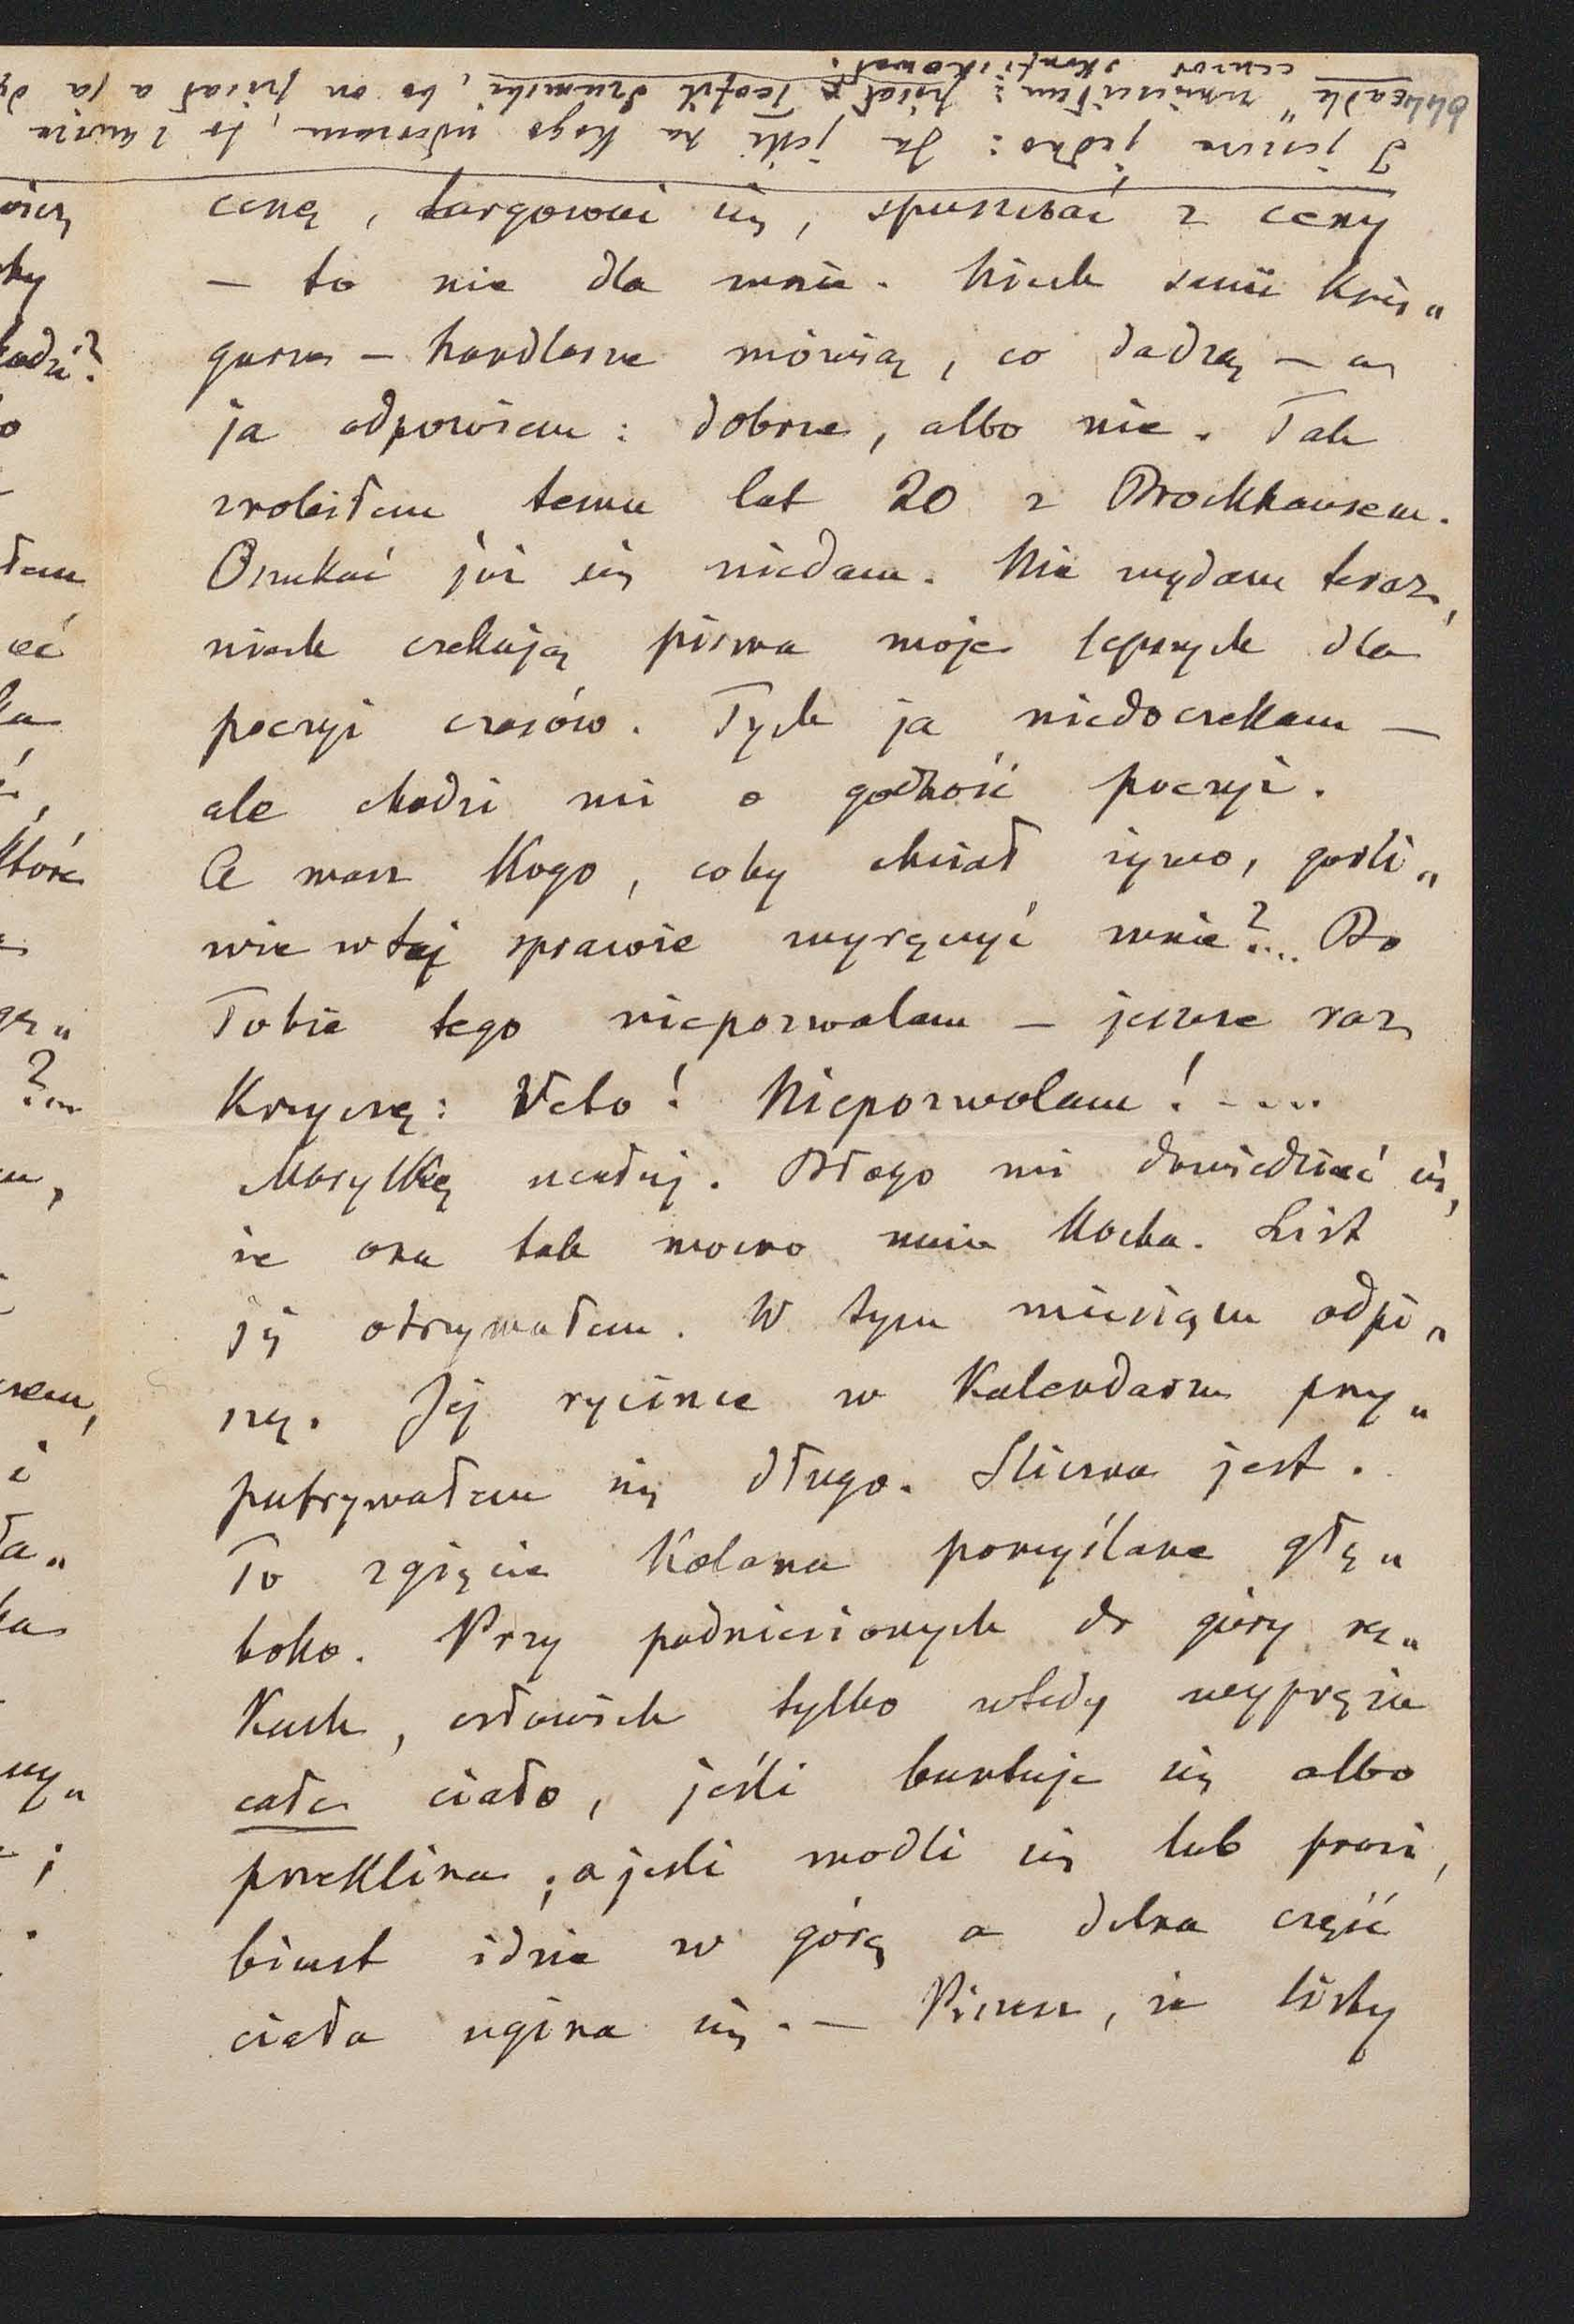 I jeszcze jedno: Ja jeśli na kogo uderzam, to zawsze
umieściłem: pisał Teofil Szumski, bo on pisał a ja
cenzor skonfiskował.
cenę, targować się, spuszczać z ceny
— to nie dla mnie. Niech sami księ„
garze — handlarze mówią, co dadzą — a
ja odpowiem: dobrze, albo nie. Tak
zrobiłem temu lat 20 z Brockhausem.
Oszukać już się niedam. Nie wydam teraz,
niech czekają pisma moje lepszych dla
poezyi czasów. Tych ja niedoczekam —
ale chodzi mi o godność poezyi.
A masz kogo, coby chciał żywo, gorli„
wie w tej sprawie wyręczyć mnie?... Bo
Tobie tego niepozwalam — jeszcze raz
krzyczę: Veto! Niepozwalam! ....
Marylkę ucałuj. Błogo mi dowiedzieć się,
że ona tak mocno mnie kocha. List
jej otrzymałem. W tym miesiącu odpi„
szę. Jej rycince w Kalendarzu przy„
patrywałem się długo. Śliczna jest.
To zgięcie kolana pomyślane głę„
boko. Przy podniesionych do góry rę„
kach, człowiek tylko wtedy wypręża
całe ciało, jeśli buntuje się albo
przeklina; a jeśli modli się lub prosi,
biust idzie w górę a dolna część
ciała ugina się. — Piszesz, że listy